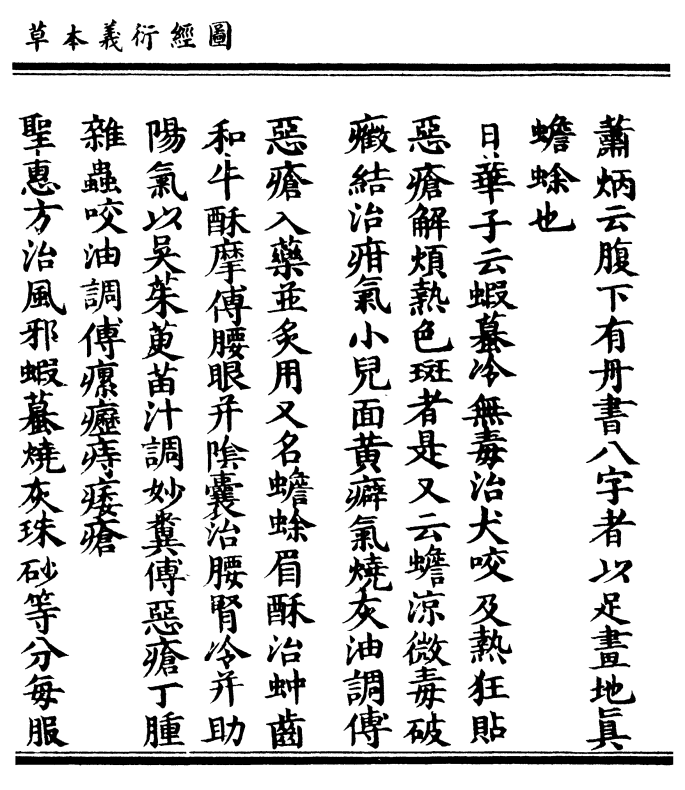 圖經衍義本草
蕭炳云腹下有丹書八字者以足畫地真
蟾蜍也
日華子云蝦蟇冷無毒治犬咬及熱狂貼
惡瘡解煩熱色斑者是又云蟾涼微毒破
癥結治疳氣小兒面黃癖氣燒灰油調傅
惡瘡入藥並炙用又名蟾蜍眉酥治蚛齒
和牛酥摩傅腰眼并陰囊治腰腎冷并助
陽氣以吳茱萸苗汁調妙糞傅惡瘡丁腫
雜蟲咬油調傅瘰癧痔瘻瘡
聖惠方治風邪蝦蟇燒灰珠砂等分每服